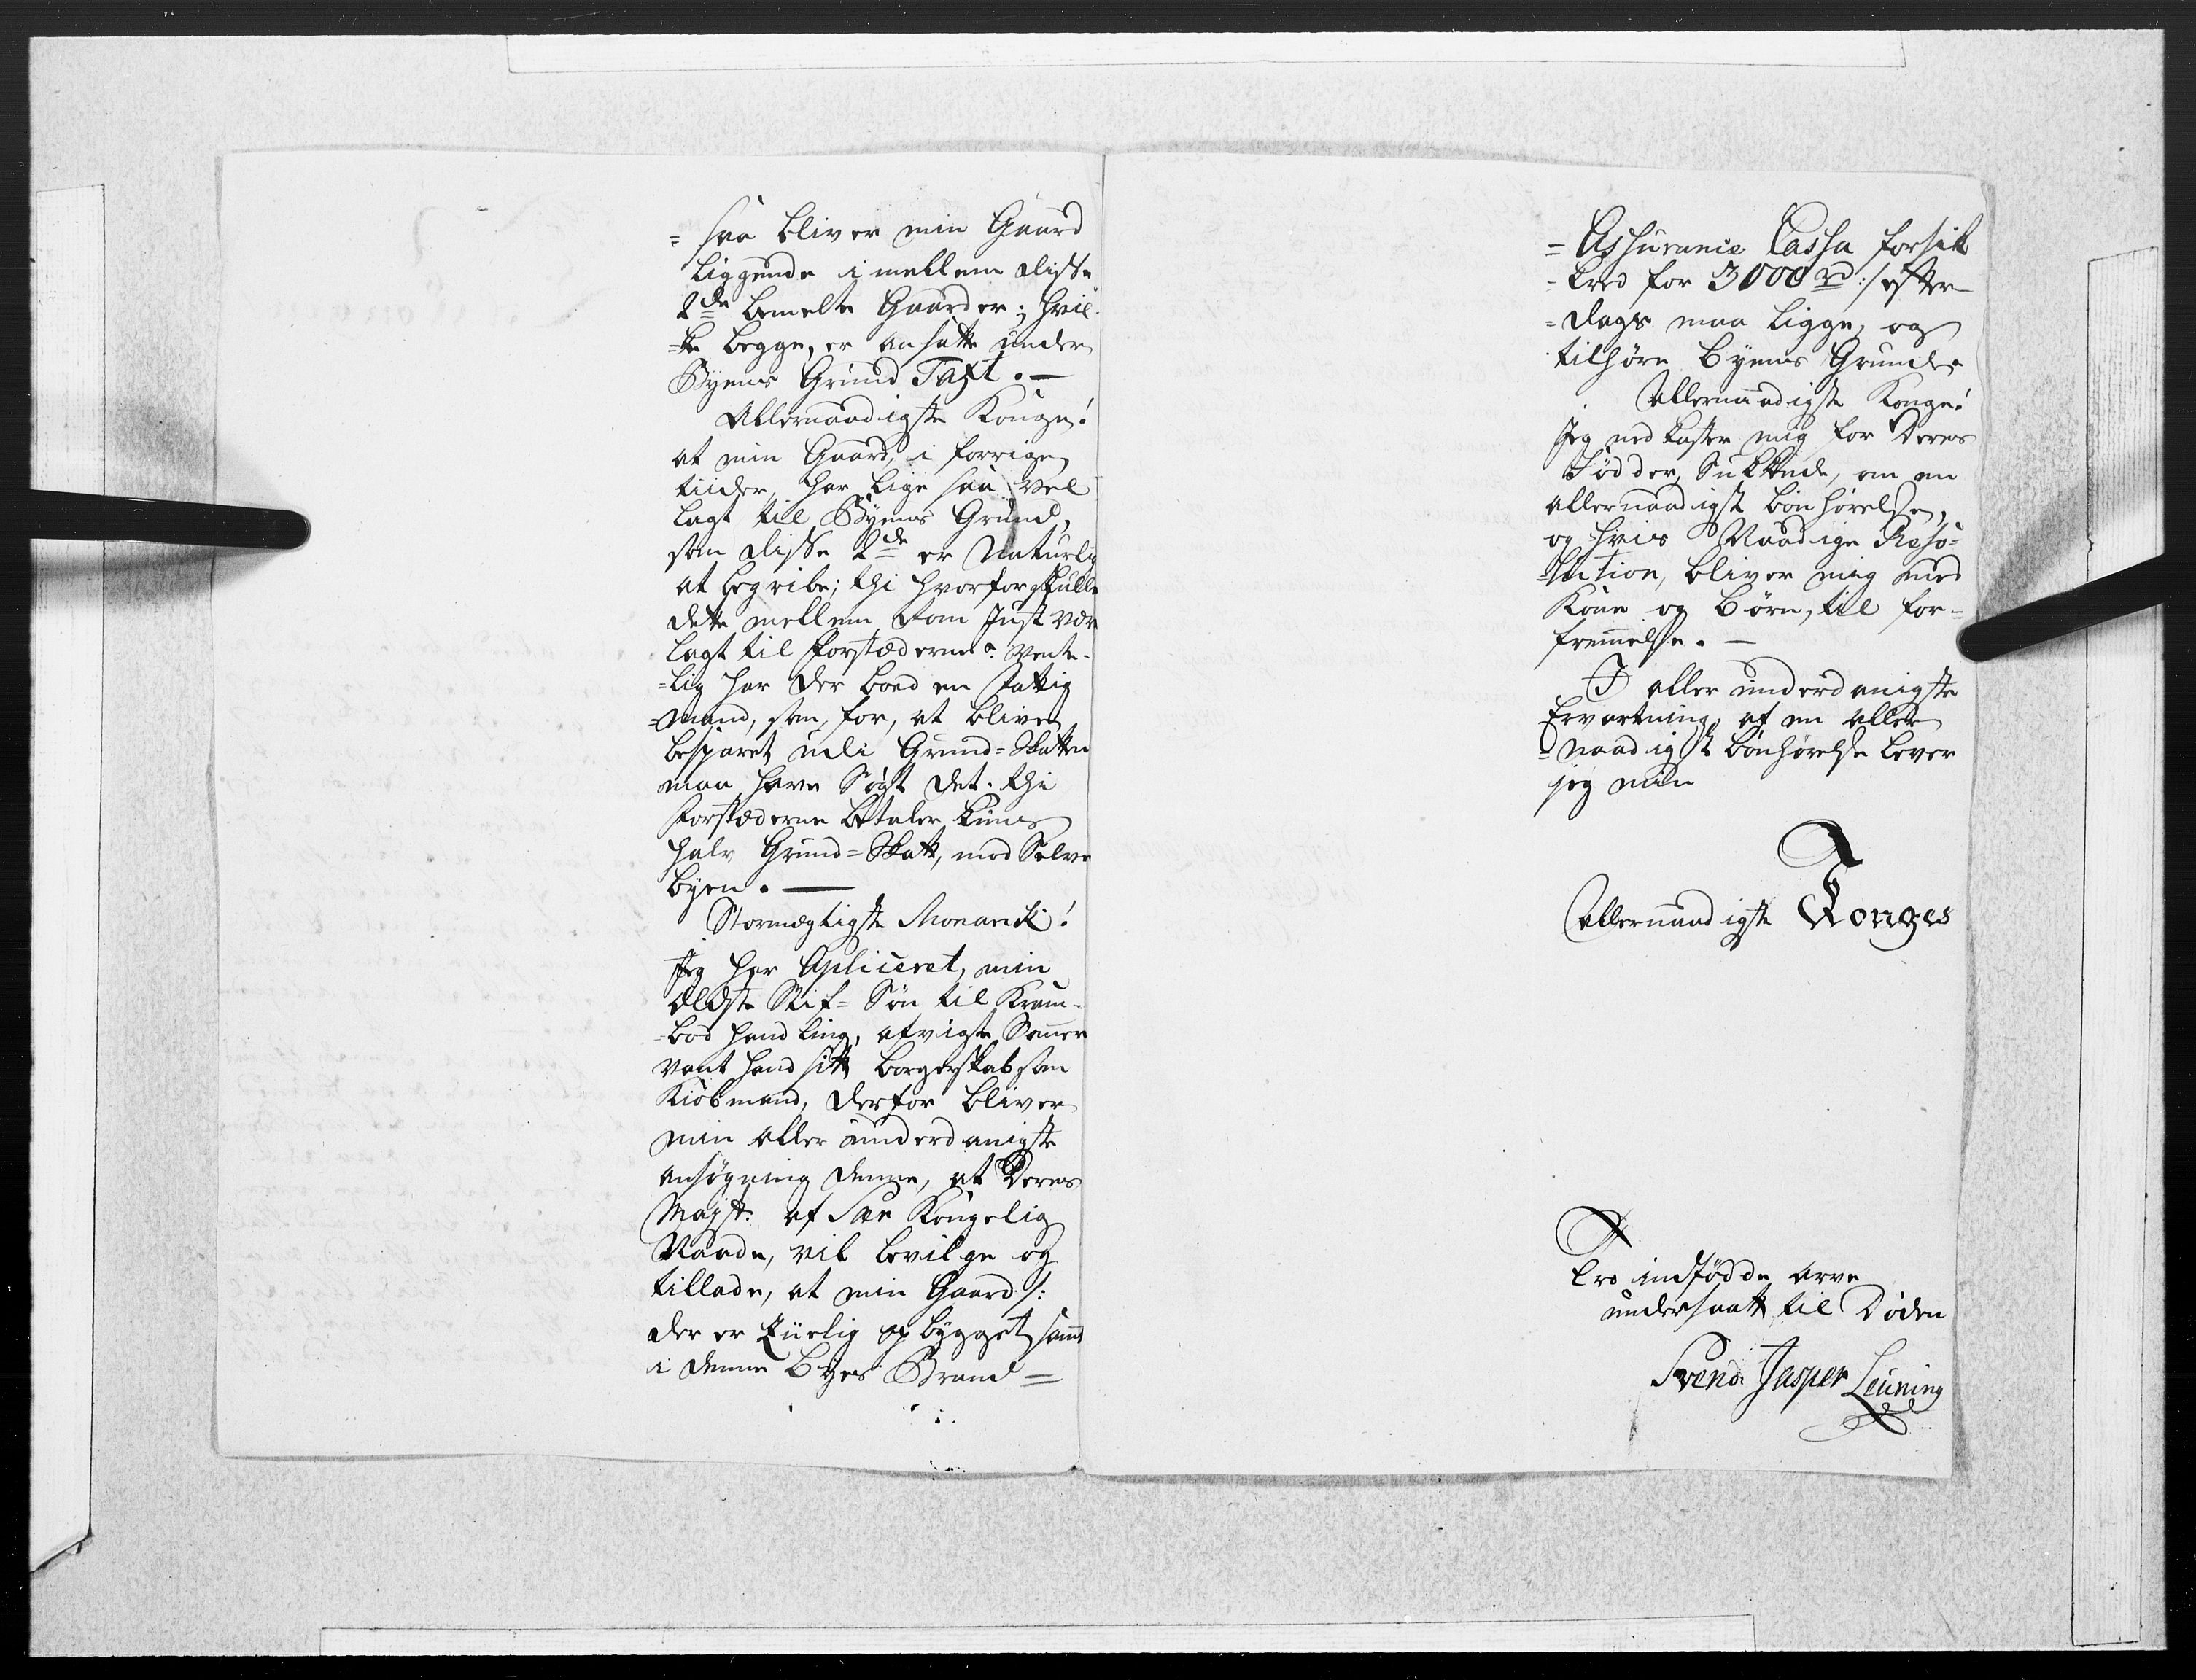 = saa bliver min Gaard
liggende i mellem disse
2de bemelte Gaarder; hvil-
=ke begge, er ansatte under
Byens Grund Taxt. —
Allernaadigste Konge!
at min Gaard, i forrige
tiider, har lige saa vel
lagt til Byens Grund,
som disse 2de er Naturlig
at begribe; thi hvorfor skulle
dette mellem Rom Just vær
lagt til forstæderne? vente-
=lig har der boed en fattig
=mand, som, for, at blive
besparet udi Grund=Skatten
maa have Søgt det. thi
forstæderne betaler kuns
halv Grund=Skatt, mod Selve
byen. —
Stormægtigste Monarch!
Jeg har Apliceret, min
ældste Stif=Søn til Kram-
=bod handling, afvigte Som̅er
vant hand sitt borgerskab som
Kiøbmand, derfor bliver
min aller underdanigste
ansøgning denne, at Deres
Majst: af Sær Kongelig
Naade, vil bevilge og
tillade, at min Gaard /:
der er zirlig opbygget, samt
i denne Byes Brand=
= Assurance Cassa forsik
=kred for 3000 rd :/ efter
=dags maa ligge, og
tilhøre Byens Grund.
Allernaadigste Konge!
Jeg nedkaster mig for Deres
Fødder, Sukkende, om en
allernaadigst bønhørelse,
og hvis Naadige Reso=
=lution, bliver mig med
Kone og Børn, til for=
frem̅else. —
I aller underdanigste
Ervartning, af en aller
=naadigst bønhørelse lever
jeg min
Allernaadigste Konges
tro indfødde arve
undersaatt til Døden
Svend Jasper Leuning